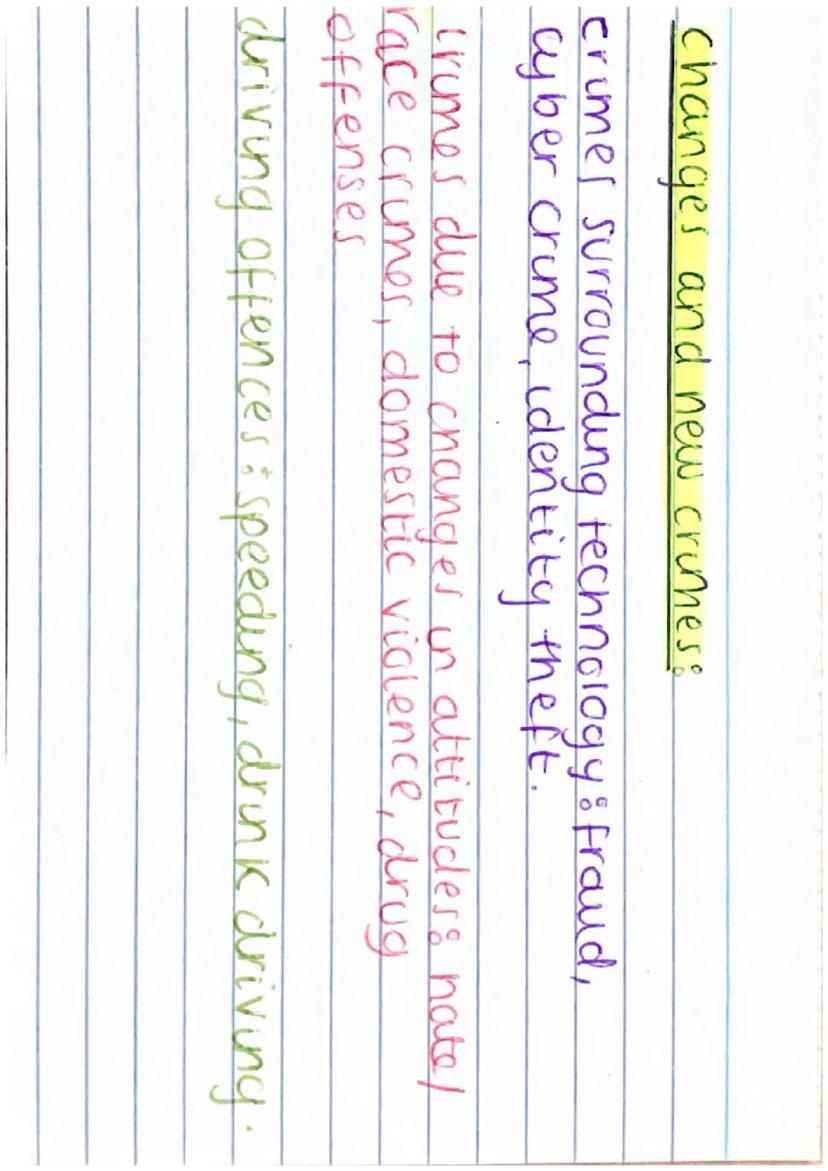 changes and new crimes:
crimes surrounding technology: fraud,
cyber crime, identity theft.
crimes due to changes in attitudes: hate/
race crimes, domestic violence, drug
offenses
driving offences: speeding, drink driving.